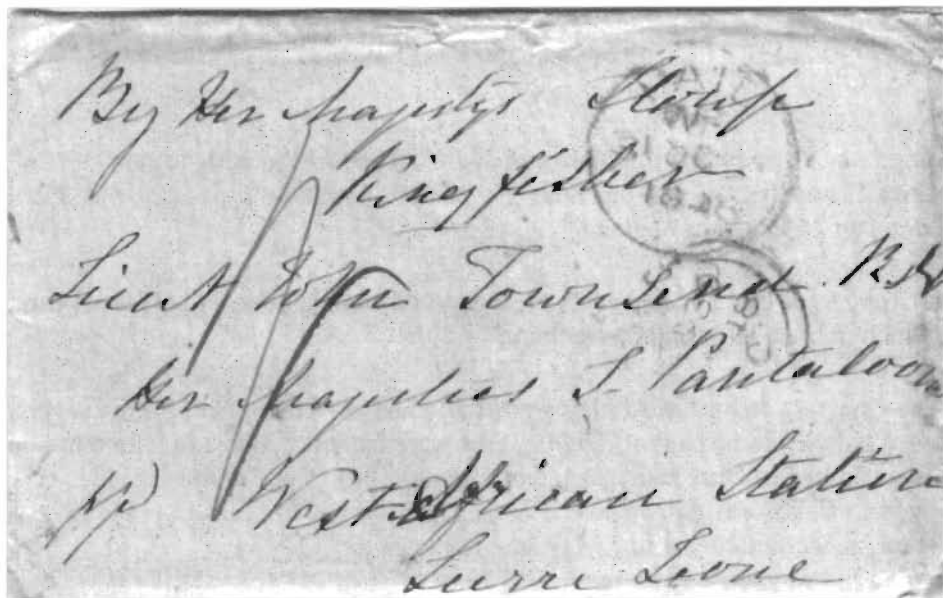 By Her Majestys Sloup
Kingfisher
Lieut John Townsend R.N
Her Majesties S. Pantaloon
West African Station
Surre Leone